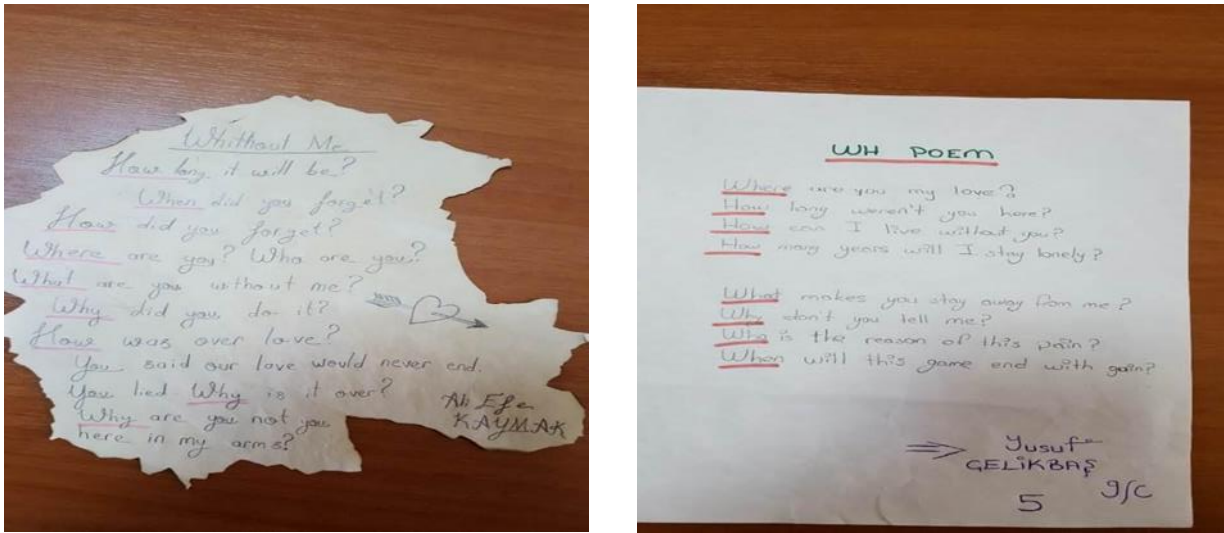 Whithout Me
How long it will be?
When did you forget?
How did you forget?
Where are you? Who are you?
What are you without me?
Why did you do it?
How was over love?
You said our love would never end.
You lied Why is it over?
Why are you not you
here in my arms?
Ali Efe
KAYMAK
WH POEM
Where are you my love?
How long weren't you here?
How can I live without you?
How many years will I stay lonely?
What makes you stay away from me?
Why don't you tell me?
Who is the reason of this pain?
When will this game end with gain?
⇒ Yusuf
ÇELİKBAŞ
9/C
5